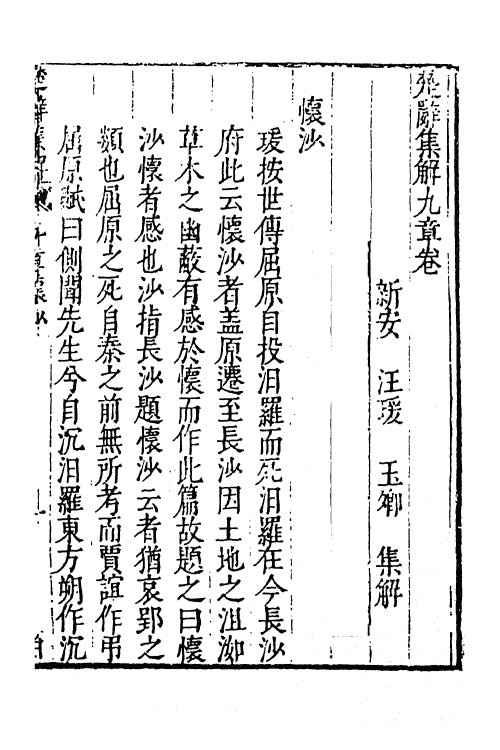 楚辭集解九章卷
新安 汪瑗 玉卿 集解
懷沙
瑗按世傳屈原自投汨羅而死汨羅在今長沙
府此云懷沙者盖原遷至長沙因土地之沮洳
草木之幽蔽有感於懷而作此篇故題之曰懷
沙懷者感也沙指長沙題懷沙云者猶哀郢之
類也屈原之死自秦之前無所考而賈誼作弔
屈原賦曰側聞先生兮自沉汨羅東方朔作沉
楚辭集解